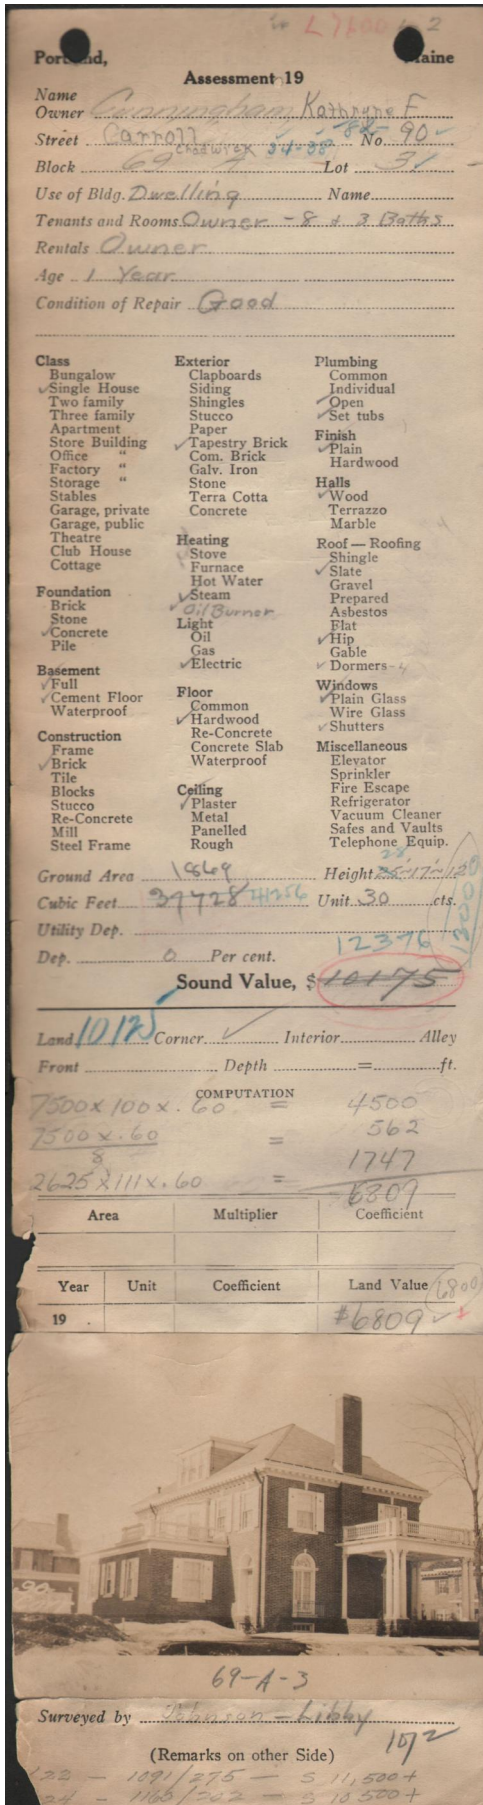 L 7100 2
Portland, Maine
Assessment 19
Name
Owner Cunningham, Kathryne F
Street Carroll No. 90
Chadwick 34-38
Block 69 A Lot 3
Use of Bldg. Dwelling Name
Tenants and Rooms Owner - 8 + 3 Baths
Rentals Owner
Age 1 Year
Condition of Repair Good
Class
Bungalow
✓Single House
Two family
Three family
Apartment
Store Building
Office "
Factory "
Storage "
Stables
Garage, private
Garage, public
Theatre
Club House
Cottage
Foundation
Brick
Stone
✓Concrete
Pile
Basement
✓Full
✓Cement Floor
Waterproof
Construction
Frame
✓Brick
Tile
Blocks
Stucco
Re-Concrete
Mill
Steel Frame
Exterior
Clapboards
Siding
Shingles
Stucco
Paper
✓Tapestry Brick
Com. Brick
Galv. Iron
Stone
Terra Cotta
Concrete
Heating
Stove
Furnace
Hot Water
✓Steam
✓Oil Burner
Light
Oil
Gas
✓Electric
Floor
Common
✓Hardwood
Re-Concrete
Concrete Slab
Waterproof
Ceiling
✓Plaster
Metal
Panelled
Rough
Plumbing
Common
Individual
✓Open
✓Set tubs
Finish
✓Plain
Hardwood
Halls
✓Wood
Terrazzo
Marble
Roof — Roofing
Shingle
✓Slate
Gravel
Prepared
Asbestos
Flat
✓Hip
Gable
✓Dormers-4
Windows
✓Plain Glass
Wire Glass
✓Shutters
Miscellaneous
Elevator
Sprinkler
Fire Escape
Refrigerator
Vacuum Cleaner
Safes and Vaults
Telephone Equip.
28
Ground Area 1869 Height 25-17-12
Cubic Feet 39728 41256 Unit 30 cts.
13000
Utility Dep.
12376
Dep. 0 Per cent.
Sound Value, $10175
Land 10125 Corner ✓ Interior Alley
Front Depth = ft.
COMPUTATION
7500 x 100 x .60 = 4500
7500 x .60 = 562
8
2625 x 111 x .60 = 1747
6809
Area Multiplier Coefficient
Year Unit Coefficient Land Value 6800
19 $6809 ✓
90
69-A-3
Surveyed by Johnson - Libby
(Remarks on other Side)
122 - 1091/275 - S 11,500+
24 - 1160/202 - S 10,500+